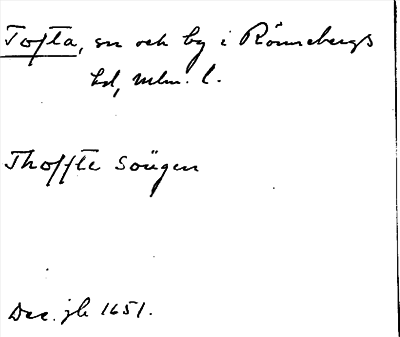 Tofta, sn och by i Rönnebergs
hd, Mlm. l.
Thoffte soügen
Dec. jb 1651.